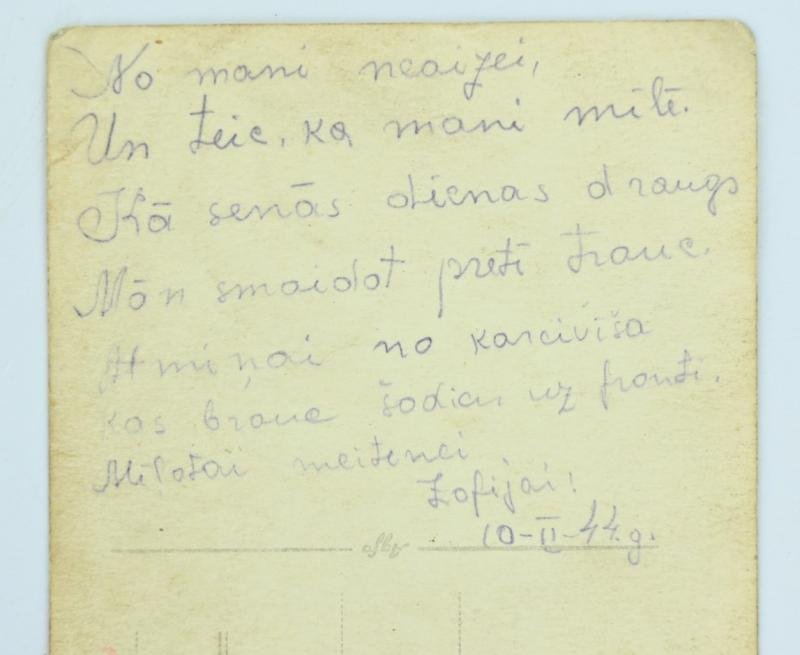 No mani neaizei,
Un teic, ka mani mīlē.
Kā senās dienas draugs
Mān smaidot pretī trauc.
Atmiņai no karēivīša
kas brauc šodien uz fronti.
Miļotai meitenei
Zofijai!
10-II-44.g.
Agfa